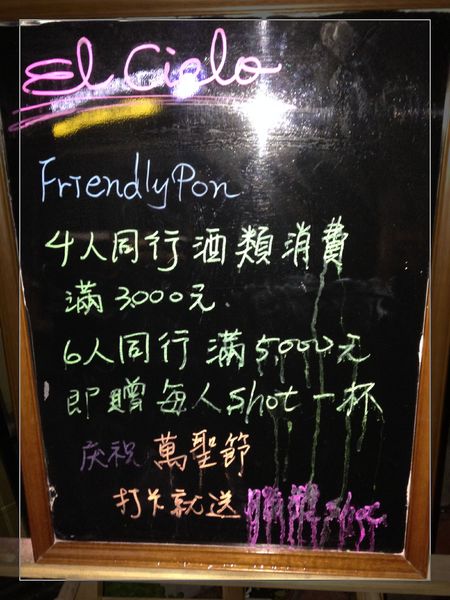 El Cielo
FriendlyPon
4人同行酒類消費
滿3000元.
6人同行滿5,000元
即贈每人shot一杯
庆祝萬聖節
打卡就送 shot